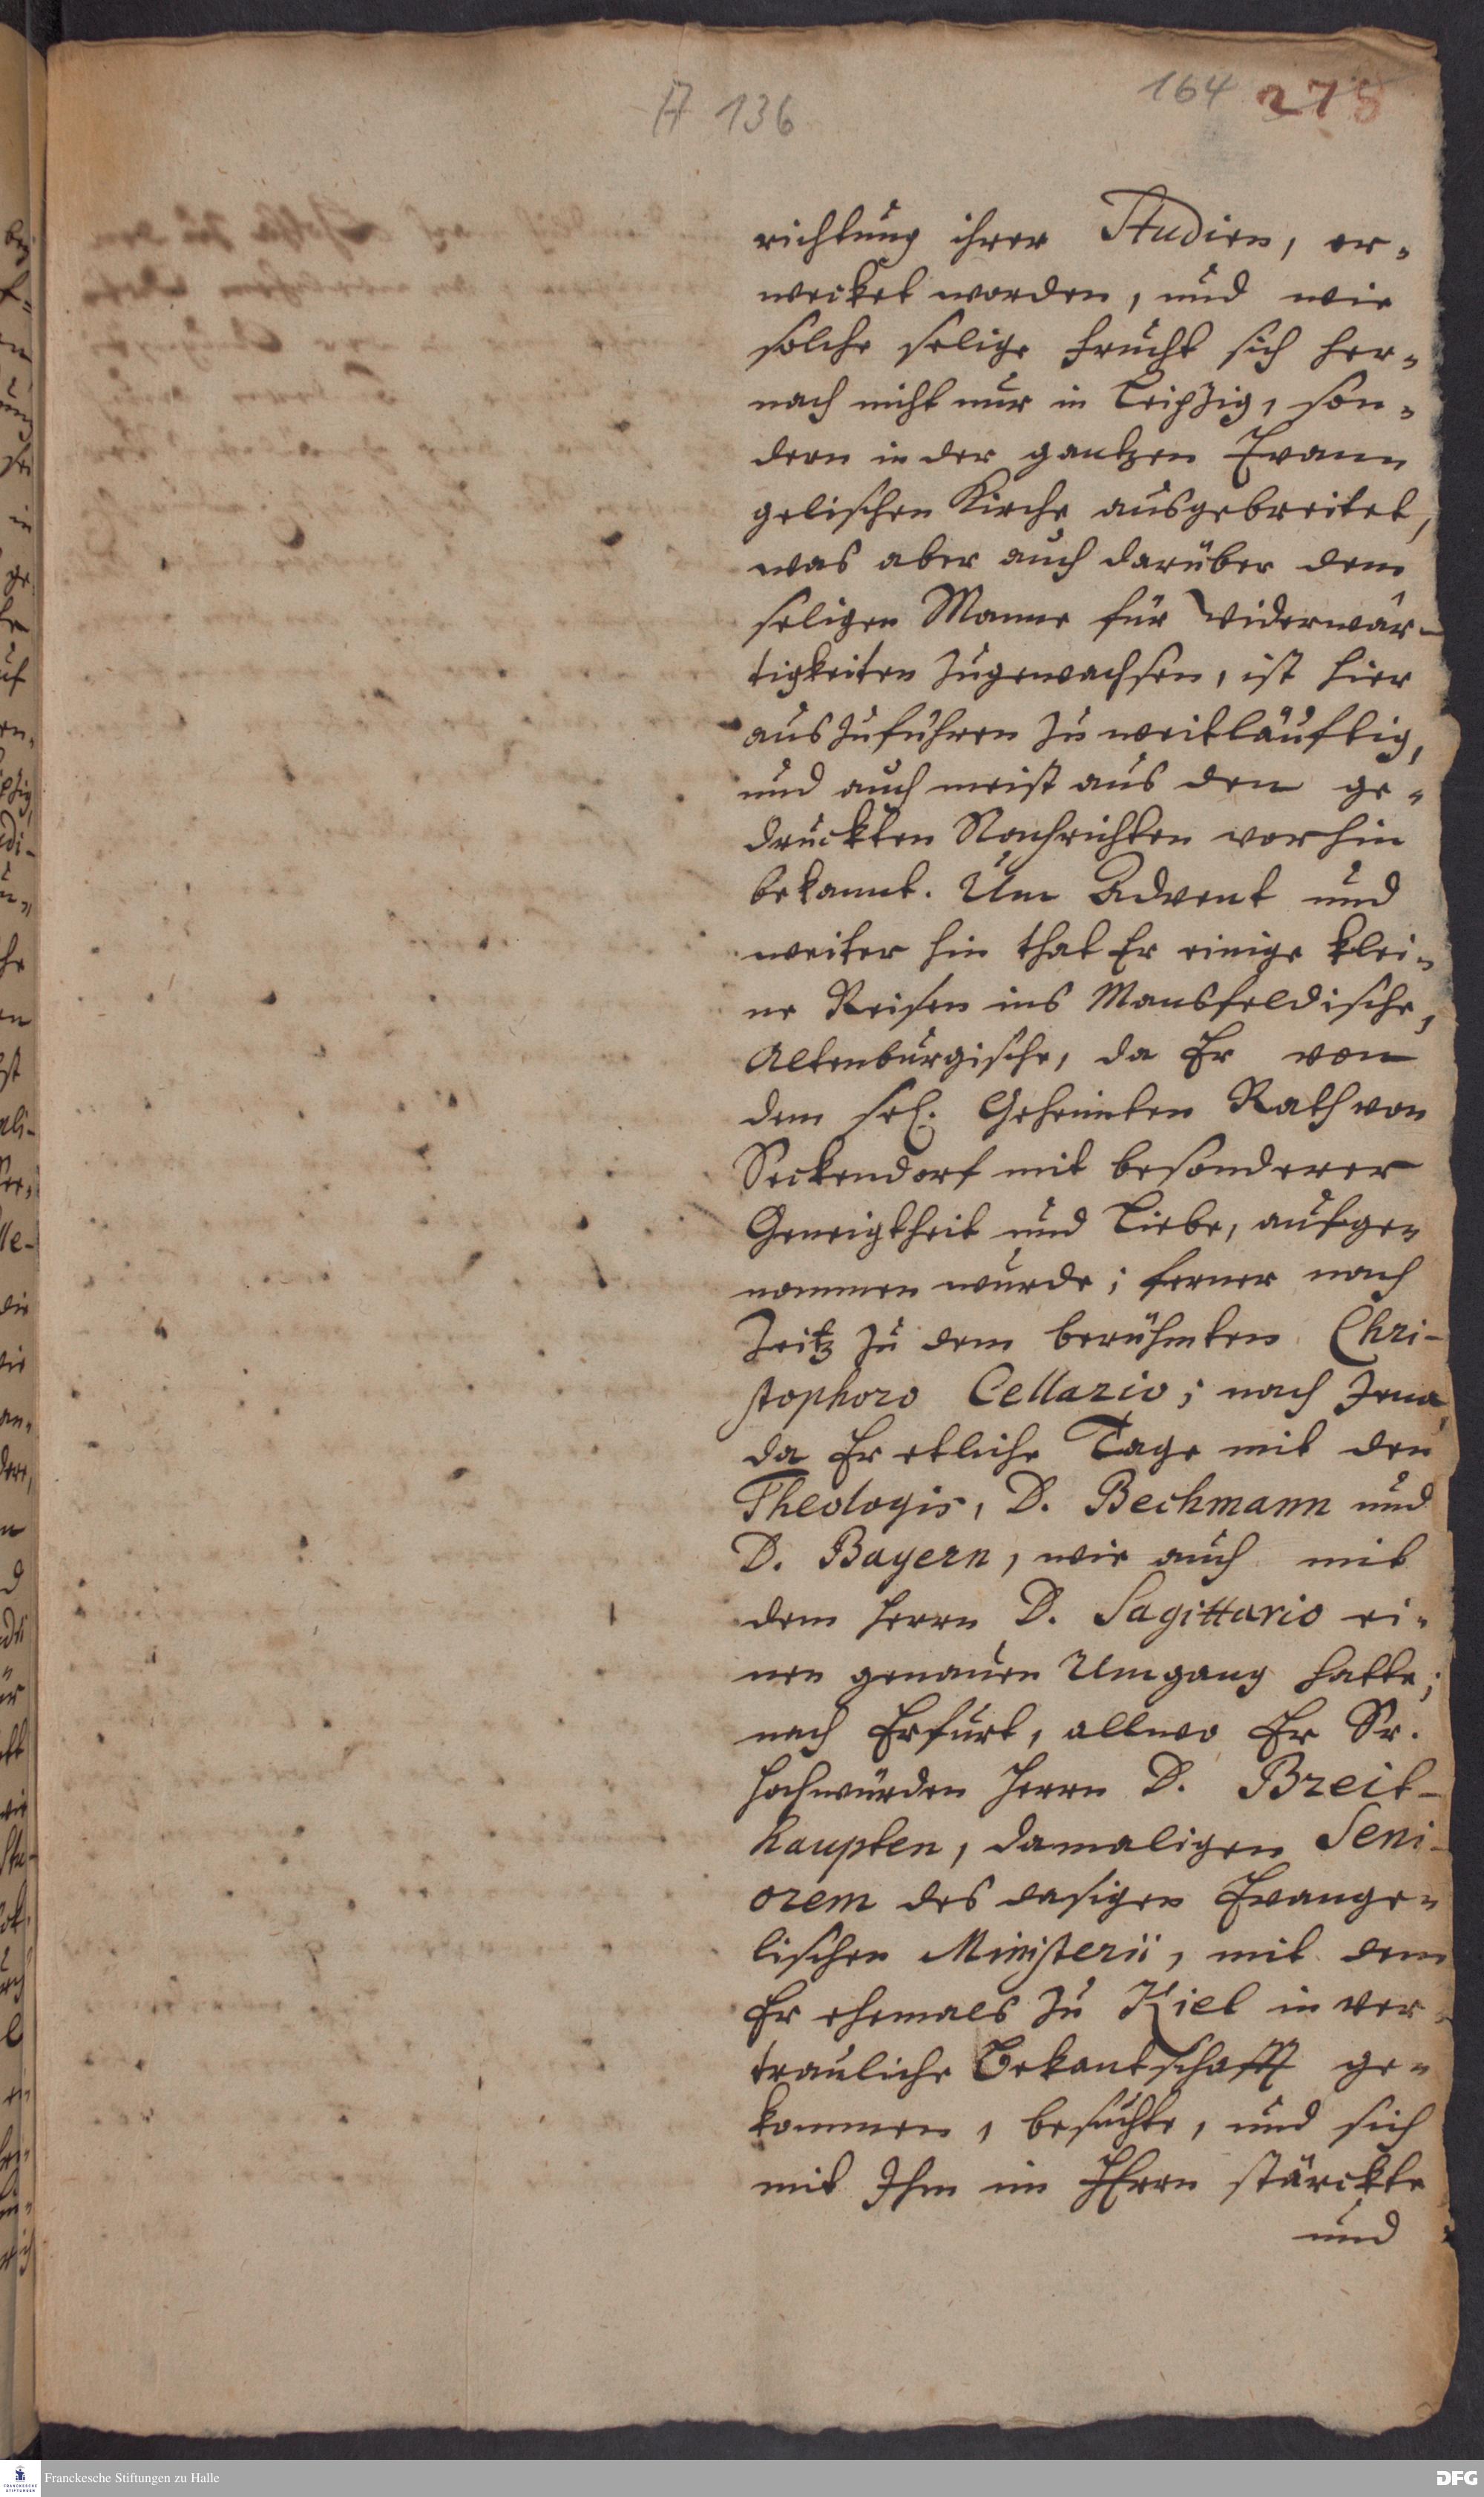 A 136
164 275
richtung ihrer Studien, er-
wecket worden, und wie
solche selige Frucht sich her-
nach nicht nur in Leipzig, son-
dern in der gantzen Evan-
gelischen Kirche ausgebreitet,
was aber auch darüber dem
seligen Manne für Widerwär-
tigkeiten zugewachsen, ist hier
auszuführen zu weitläuftig,
und auch meist aus den ge-
druckten Nachrichten vorhin
bekannt. Um Advent und
weiter hin that Er einige klei-
ne Reisen ins Mansfeldische,
Altenburgische, da Er von
dem sel. Geheimten Rath von
Seckendorf mit besonderer
Geneigtheit und Liebe, aufge-
nommen wurde; ferner nach
Zeitz zu dem berühmten Chri-
stophoro Cellario; nach Jena,
da Er etliche Tage mit den
Theologis, D. Bechmann und
D. Bayern, wie auch mit
dem Herrn D. Sagittario ei-
nen genauen Umgang hatte;
nach Erfurt, allwo Er Sr.
Hochwürden Herrn D. Breit-
haupten, damaligen Seni-
orem des dasigen Evange-
lischen Ministerii, mit dem
Er ehemals zu Kiel in ver-
trauliche Bekantschafft ge-
kommen, besuchte, und sich
mit Ihm im HErrn stärckte
und
Franckesche Stiftungen zu Halle
DFG